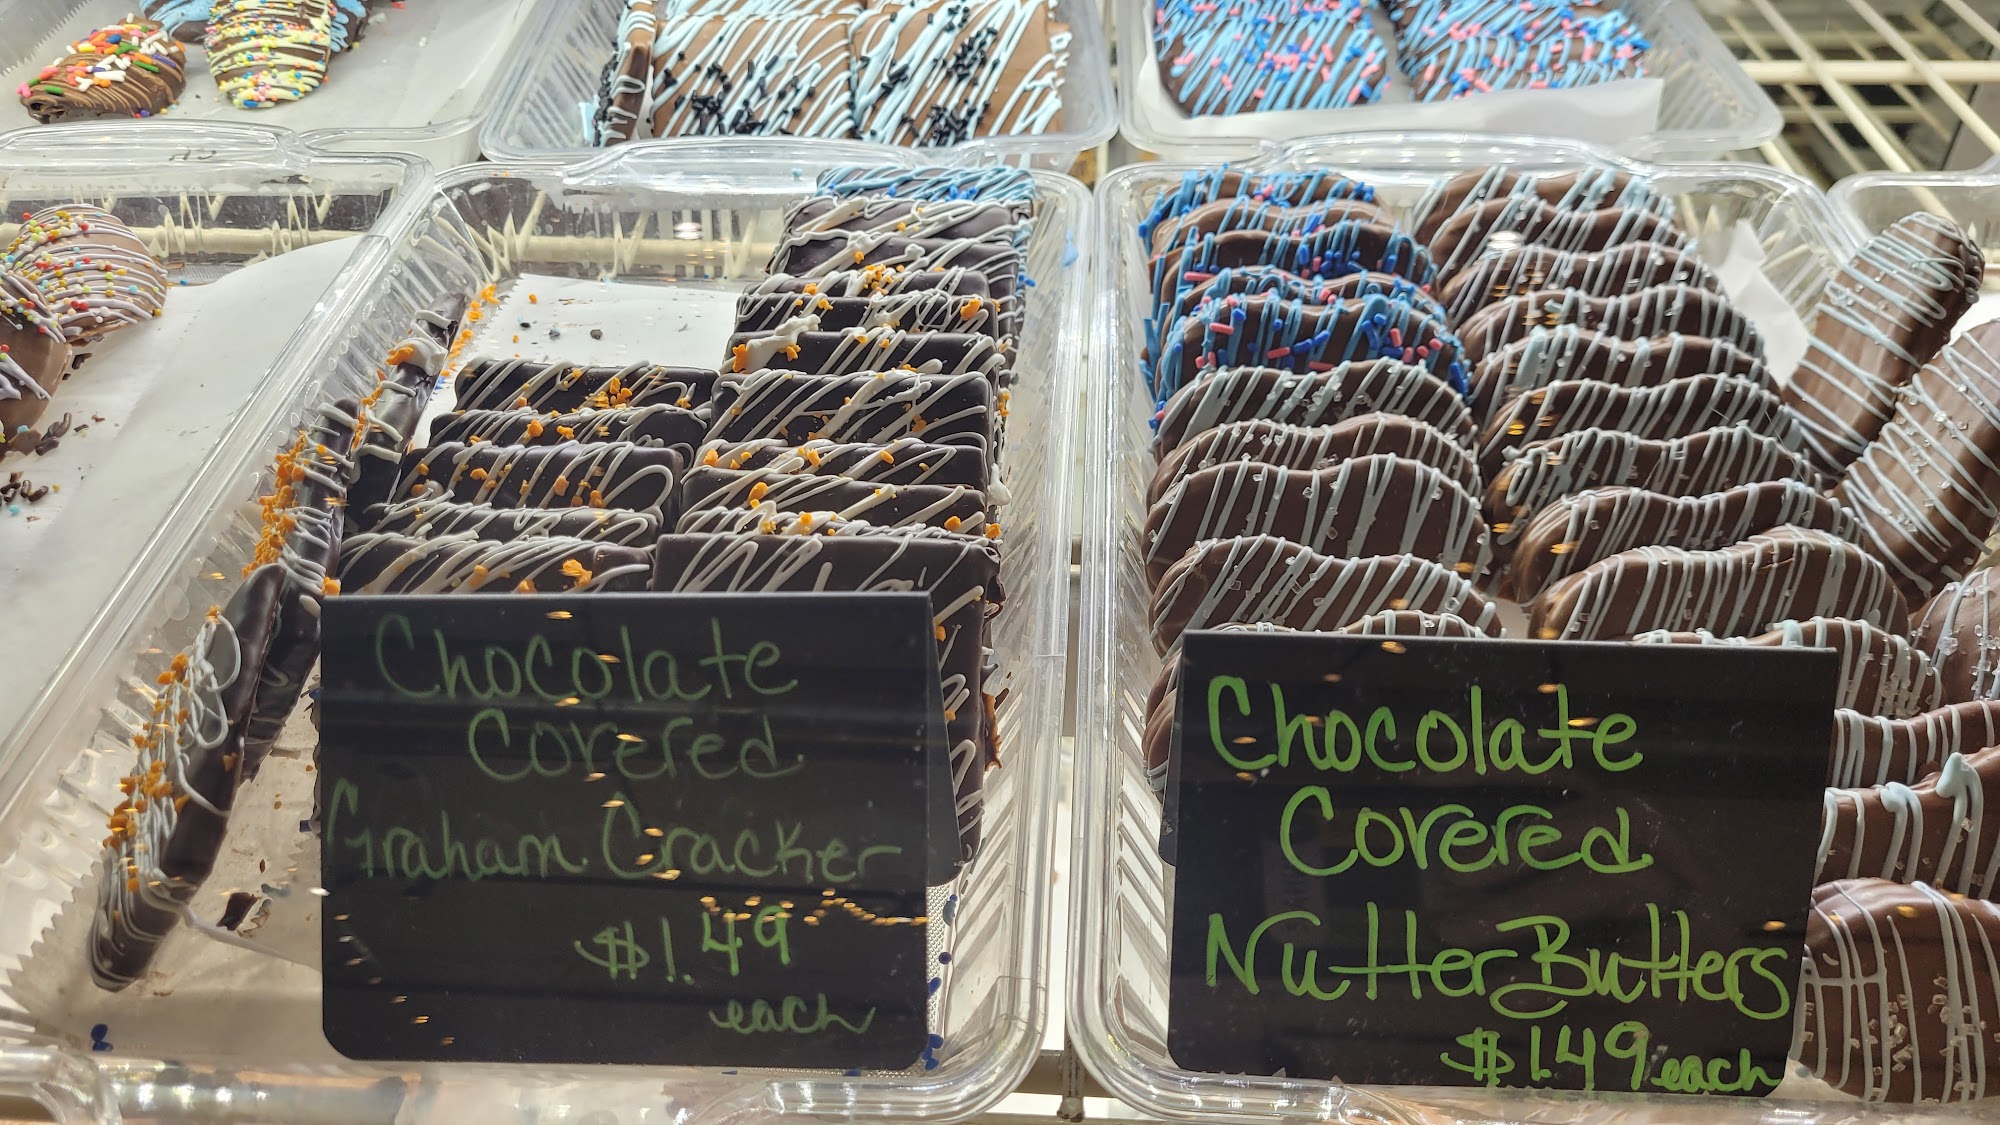 Chocolate
Covered
Graham Cracker
$1.49
each
Chocolate
Covered
Nutter Butters
$1.49 each